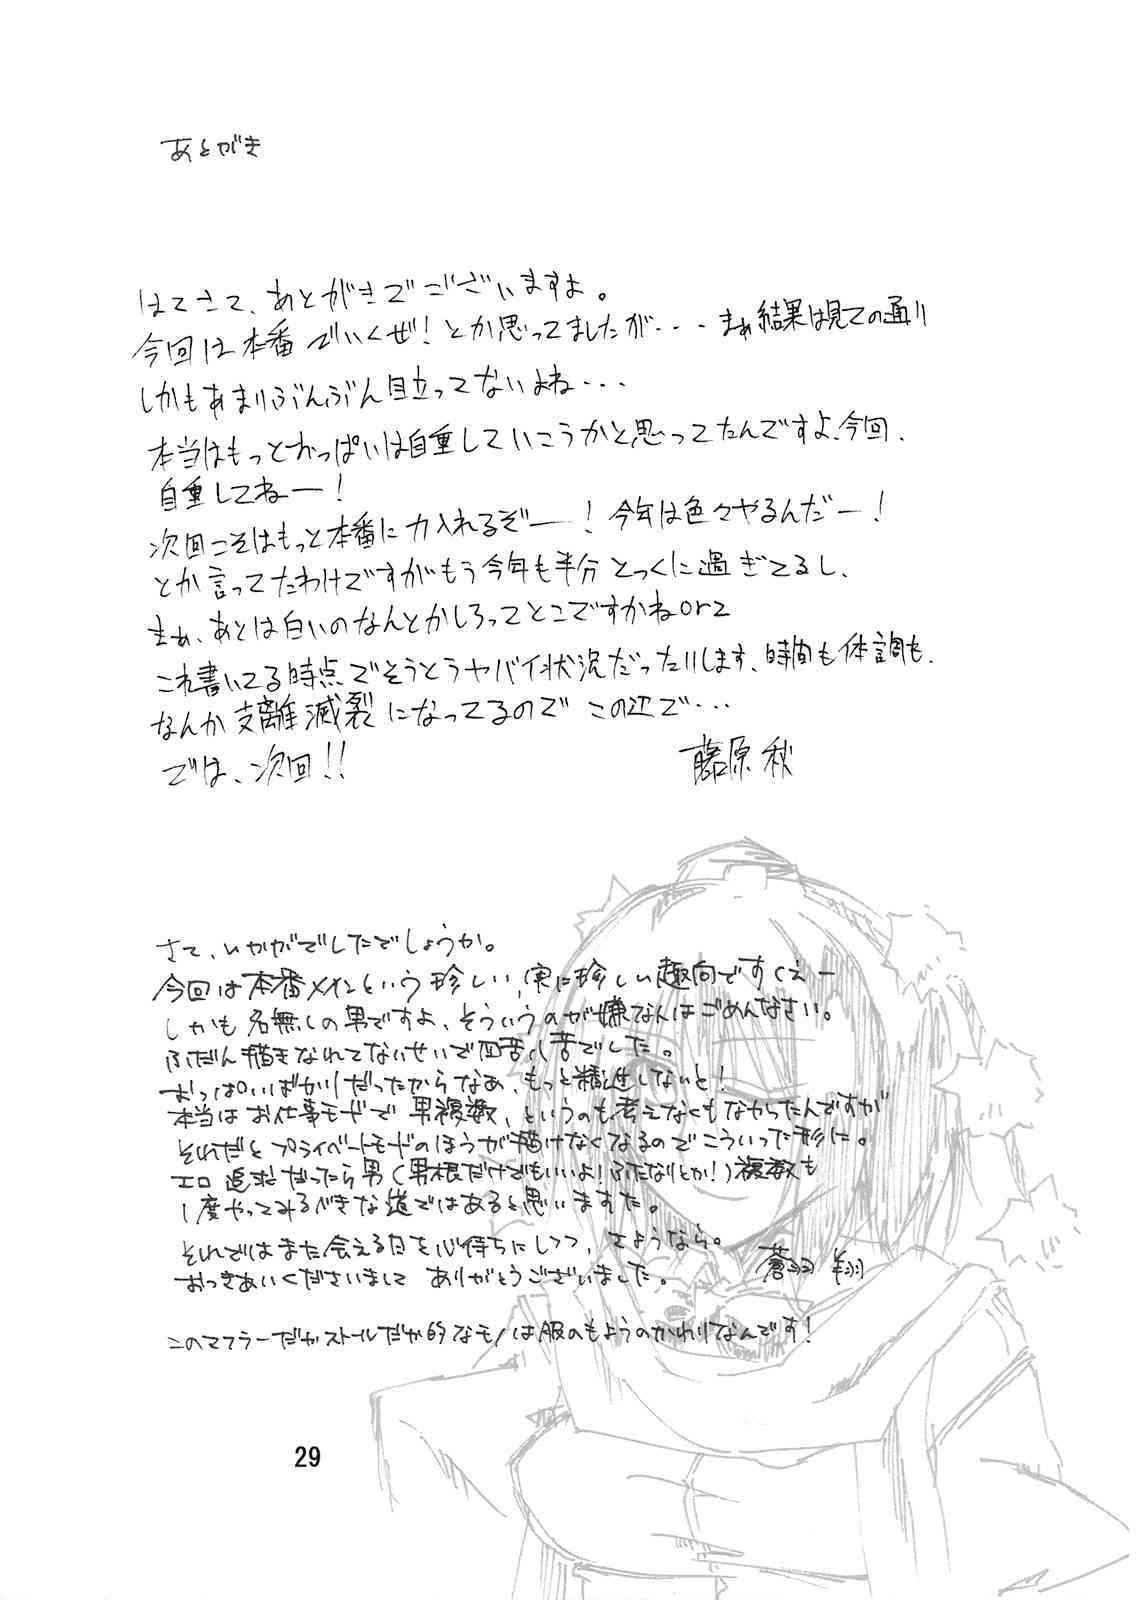 あとがき
はてさて、あとがきでございますよ。
今回は本番でいくぜ!とか思ってましたが・・・まぁ結果は見ての通り
しかもあまりぶんぶん目立ってないよね・・・
本当はもっとおっぱいは自重していこうかと思ってたんですよ、今回、
自重してねー!
次回こそはもっと本番に力入れるぞー!今年は色々やるんだー!
とか言ってたわけですがもう今年も半分とっくに過ぎてるし、
まぁ、あとは白いのなんとかしろってとこですかねorz
これ書いてる時点でそうとうヤバイ状況だったりします、時間も体調も、
なんか支離滅裂になってるのでこの辺で・・・
では、次回!!
藤原 秋
さて、いかがでしたでしょうか。
今回は本番メインという珍しい、実に珍しい趣向ですぐぇー
しかも名無しの男ですよ、そういうのが嫌なんはごめんなさい。
ふだん描きなれてないせいで四苦八苦でした。
おっぱいばかりだったからなぁ、もっと精進しないと!
本当はお仕事モードで男複数、というのも考えなくもなかったんですが
それだとプライベートモードのほうが描けなくなるのでこういった形に。
エロ追求だったら男(男根だけでもいいよ!ふたなりとか!)複数も
1度やってみるべきな道ではあると思いますた。
それではまた会える日を心待ちにしつつ、さようなら。
おつきあいくださいまして ありがとうございました。
蒼羽 翔
このマフラーだかストールだか的なモノは服のもようのかわりなんです!
29